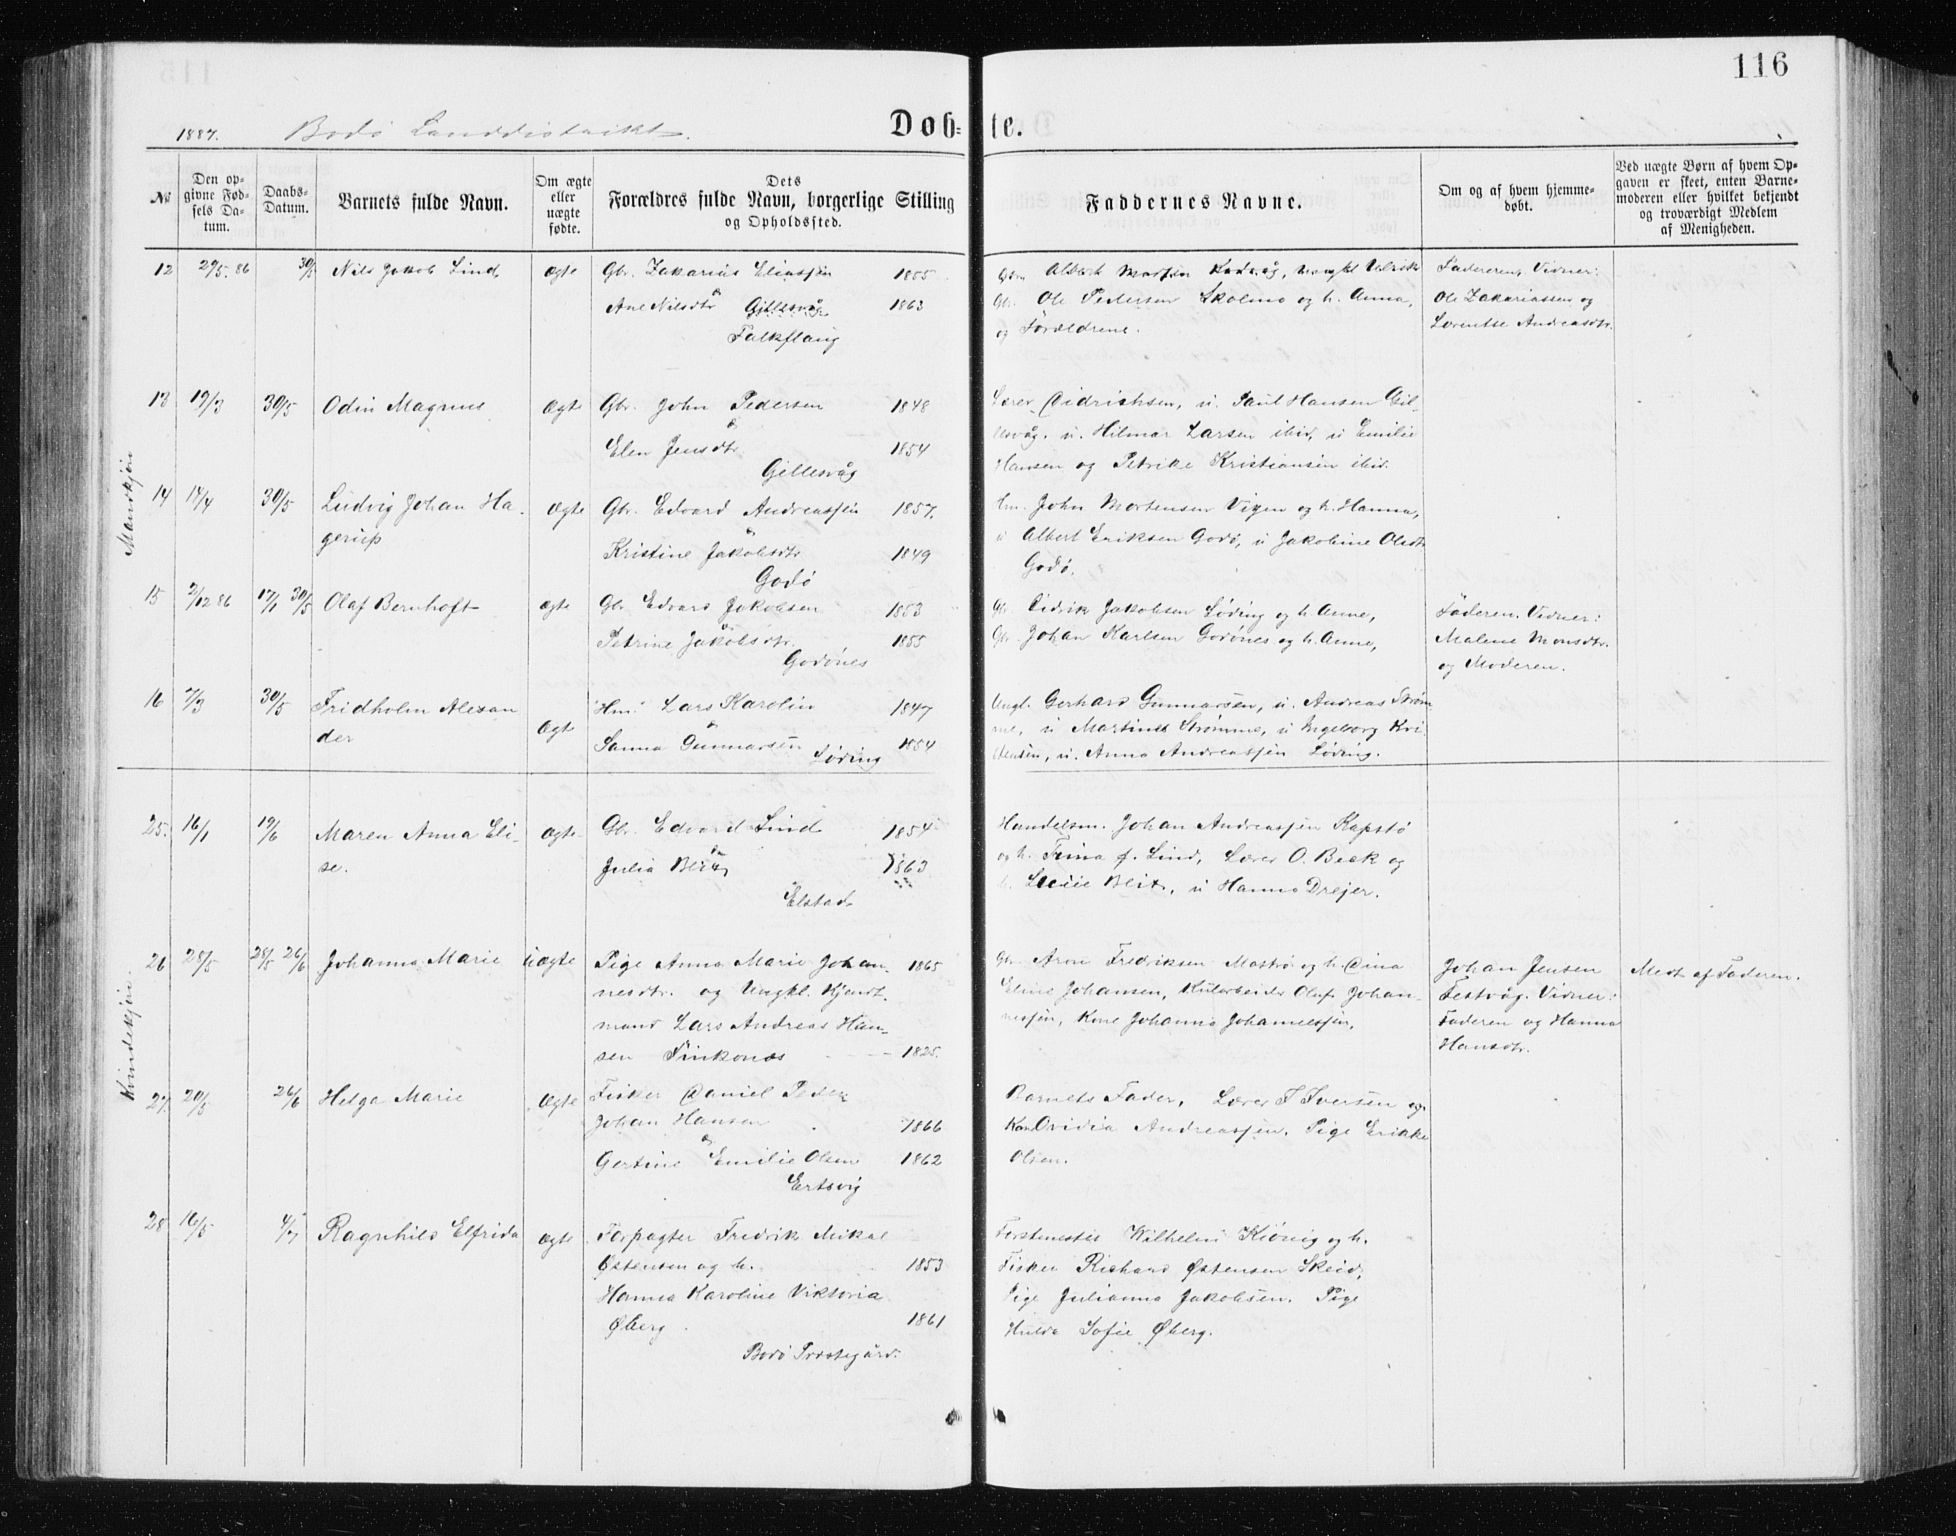 116
1887. Bodø Landdistrikt.
Døb-te.
№
Den op-
givne Fød-
sels Da-
tum.
Daabs-
Datum.
Barnets fulde Navn.
Om ægte
eller
uægte
fødte.
Dets
Forældres fulde Navn, borgerlige Stilling
og Opholdssted.
Faddernes Navne.
Om og af hvem hjemme-
døbt.
Ved uægte Børn af hvem Op-
gaven er skeet, enten Barne-
moderen eller hvilket bekjendt
og troværdigt Medlem
af Menigheden.
Mandkjøn
12 29/5. 86 30/5 Nils Jakob Lind ægte Gbr. Zakarias Eliassen 1855
Ane Nilsdtr Gillesvåg 1863
Falkflaug
Ole Pedersen Skolmo og h. Anna,
og Forældrene.
Faderen, Vidner:
Ole Zakariassen og
Lorentse Andreasdtr.
13 19/3 30/5 Odin Magnus ægte Gbr. John Pedersen 1848
Elen Jensdtr 1854
Gillesvåg
Lærer Didrichsen, u. Paul Hansen Gil-
lesvåg. u. Hilmar Larsen ibid, u Emilie
Hansen og Petrike Kristiansen ibid.
14 14/4 30/5 Ludvig Johan Ha-
gerup
ægte Gbr. Edvard Andreassen 1857.
Kristine Jakobsdtr 1849
Godø
Hm. John Mortensen Vigen og h. Hanna,
u Albert Eriksen Godø, u Jakobine Olsdtr
Godø.
15 2/12 86 17/1 30/5 Olaf Bernhoft ægte Gbr. Edvard Jakobsen 1853
Petrine Jakobsdtr 1855
Godønes
Gbr. Didrik Jakobsen Løding og h. Anne,
Gbr. Johan Karlsen Godønes og h. Anne,
Faderen. Vidner:
Malene Monsdtr.
og Moderen.
16 7/3 30/5 Fridholm Alexan
der
ægte Hm. Lars Karolin 1847
Sanna Gunnarsen 1854
Løding
Ungk. Gerhard Gunnarsen, u. Andreas Strøm
me, u Martines Strømme, u Ingeborg Kri
stensen, u. Anna Andreassen Løding.
Kvindekjøn.
25. 16/1 19/6 Maren Anna Eli-
se.
ægte Gbr. Edvard Lind 1854
Julia Blix 1863
Elstad
Handelsm. Johan Andreassen Kapstø
og h. Trina f. Lind, Lærer O. Beck og
h. Lucie Blix, u Hanna Drejer.
26 28/5 28/5 26/6 Johanna Marie uægte Pige Anna Marie Johan- 1865
nesdtr. og Ungkl. Ejendt.
mand Lars Andreas Han-
sen Finkonæs 1825.
Gbr. Aron Fredriksen Mastrø og h. Dina
Eline Johansen, Kularbeider Oluf Johan-
nessen, Kone Johanna Johannessen,
Johan Jensen
Festvåg. Vidner:
Faderen og Hanna
Hansdtr.
Med. af Faderen.
27. 20/5 26/6 Helga Marie ægte Fisker Daniel Peder
Johan Hansen 1866
Gertine Emilie Olsen 1862
Ertsvig
Barnets Fader, Lærer I Iversen og
Kone Ovidia Andreassen. Pige Erikke
Olsen.
28 16/5 4/7 Ragnhild Elfrida ægte Forpagter Fredrik Mikal
Østensen og h. 1853
Hanna Karoline Viktoria
Øberg 1861
Bodø Præstegård.
Forstmester Wilhelm Kiønig og h.
Fisker Richard Østensen Skeid,
Pige Julianna Jakobsen. Pige
Hulda Sofie Øberg.